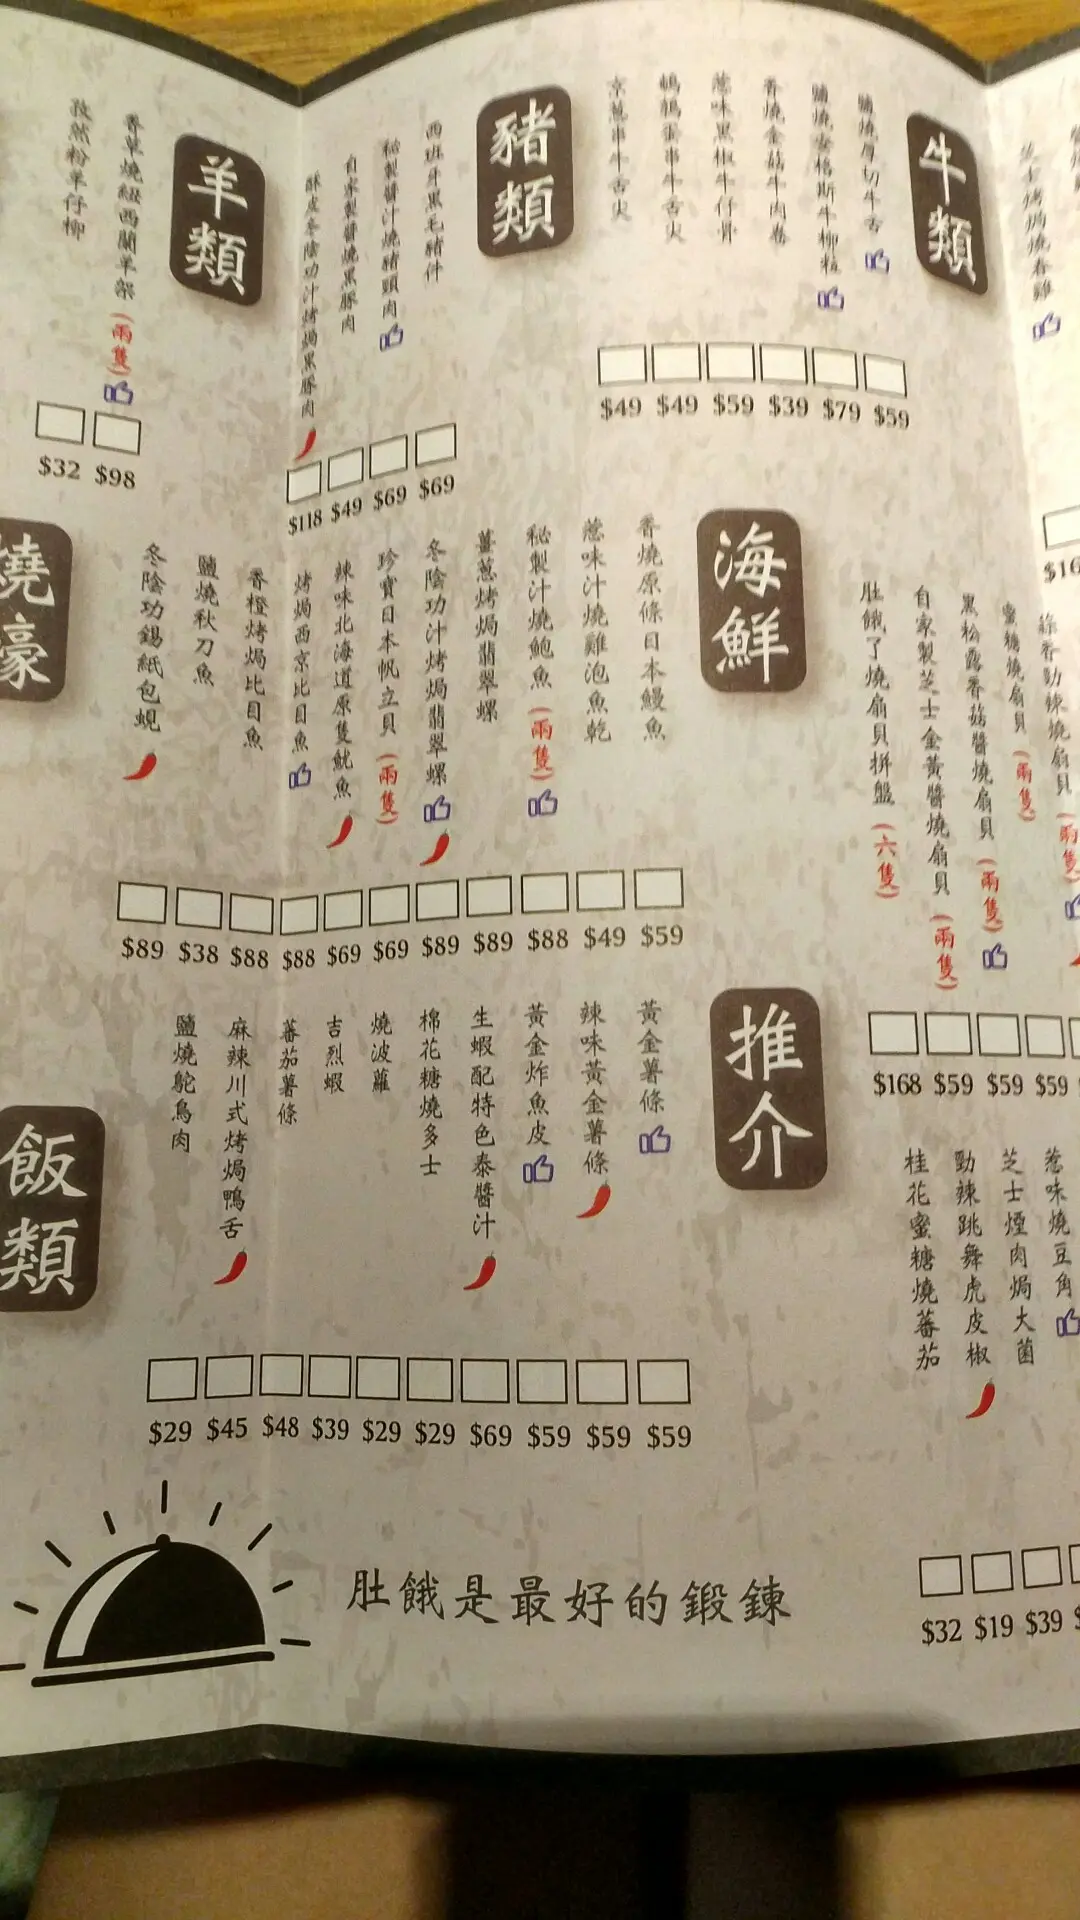 芝士烤焗燒春雞
$16
牛類
鹽燒厚切牛舌
鹽燒安格斯牛柳粒
香燒金菇牛肉卷
惹味黑椒牛仔骨
鵪鶉蛋串牛舌尖
京蔥串牛舌尖
$49 $49 $59 $39 $79 $59
豬類
西班牙黑毛豬件
秘製醬汁燒豬頸肉
自家製醬燒黑豚肉
酥皮冬陰功汁烤焗黑豚肉
$118 $49 $69 $69
羊類
香草燒紐西蘭羊架（兩隻）
孜然粉羊仔柳
$32 $98
蒜香勁辣燒扇貝（兩隻）
蜜糖燒扇貝（兩隻）
黑松露香菇醬燒扇貝（兩隻）
自家製芝士金黃醬燒扇貝（兩隻）
肚餓了燒扇貝拼盤（六隻）
$168 $59 $59 $59
海鮮
香燒原條日本鰻魚
惹味汁燒雞泡魚乾
秘製汁燒鮑魚（兩隻）
薑蔥烤焗翡翠螺
冬陰功汁烤焗翡翠螺
珍寶日本帆立貝（兩隻）
辣味北海道原隻魷魚
烤焗西京比目魚
香橙烤焗比目魚
鹽燒秋刀魚
冬陰功錫紙包蜆
$89 $38 $88 $88 $69 $69 $89 $89 $88 $49 $59
燒蠔
惹味燒豆角
芝士煙肉焗大菌
勁辣跳舞虎皮椒
桂花蜜糖燒蕃茄
$32 $19 $39
推介
黃金薯條
辣味黃金薯條
黃金炸魚皮
生蝦配特色泰醬汁
棉花糖燒多士
燒波蘿
吉烈蝦
蕃茄薯條
麻辣川式烤焗鴨舌
鹽燒鴕鳥肉
$29 $45 $48 $39 $29 $29 $69 $59 $59 $59
飯類
肚餓是最好的鍛鍊